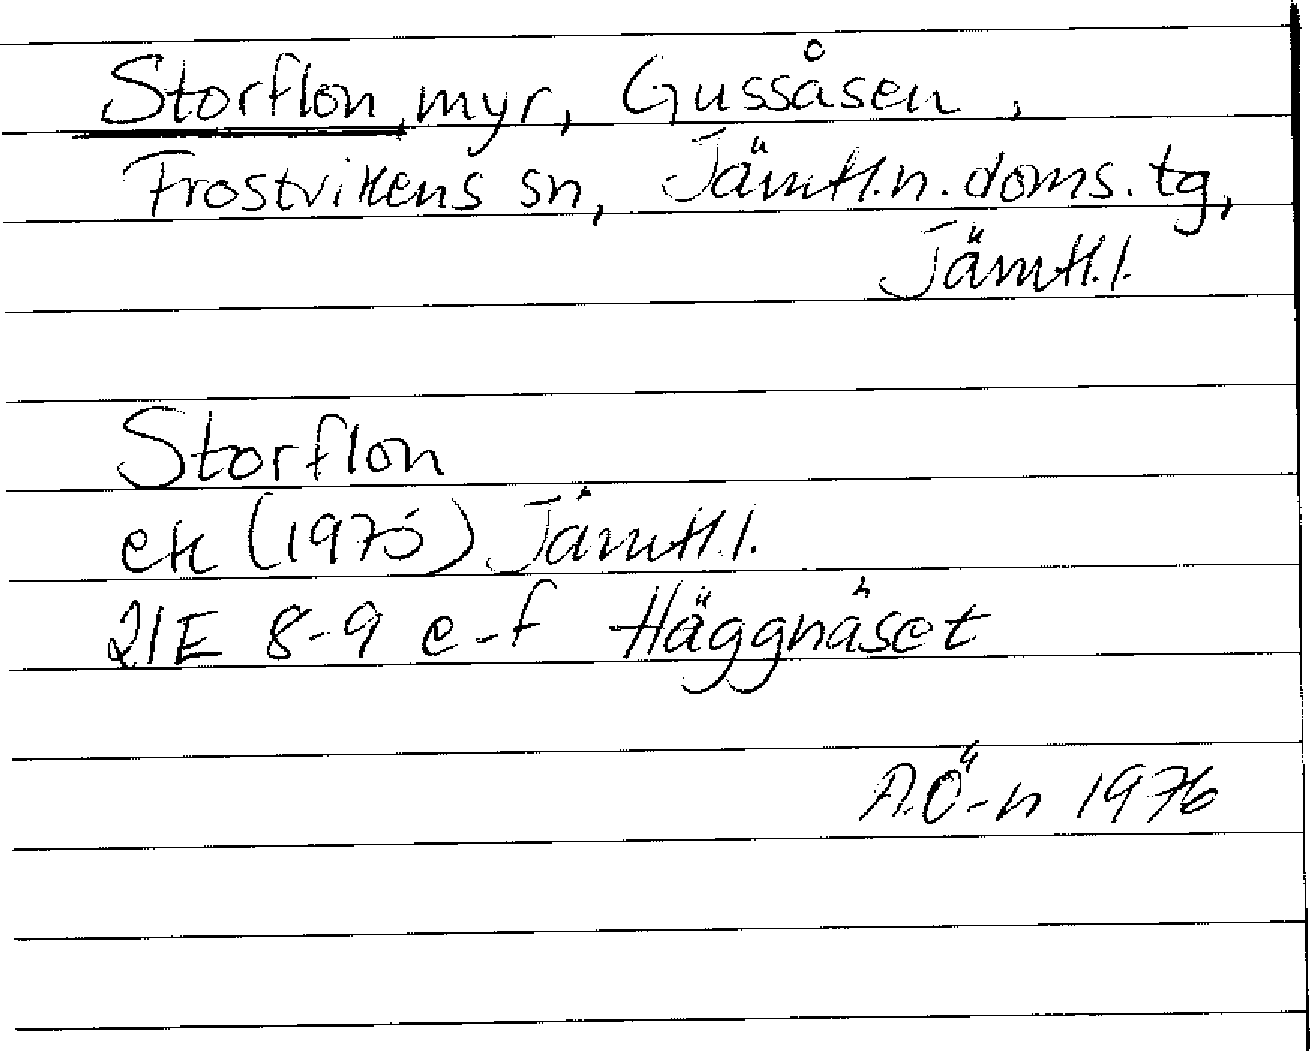 Storflon, myr, Gussåsen,
Frostvikens sn, Jämtl.n.doms.tg,
Jämtl.l.
Storflon
ek (1975) Jämtl.l.
21E 8-9 e-f Häggnäset
A.Ö-n 1976